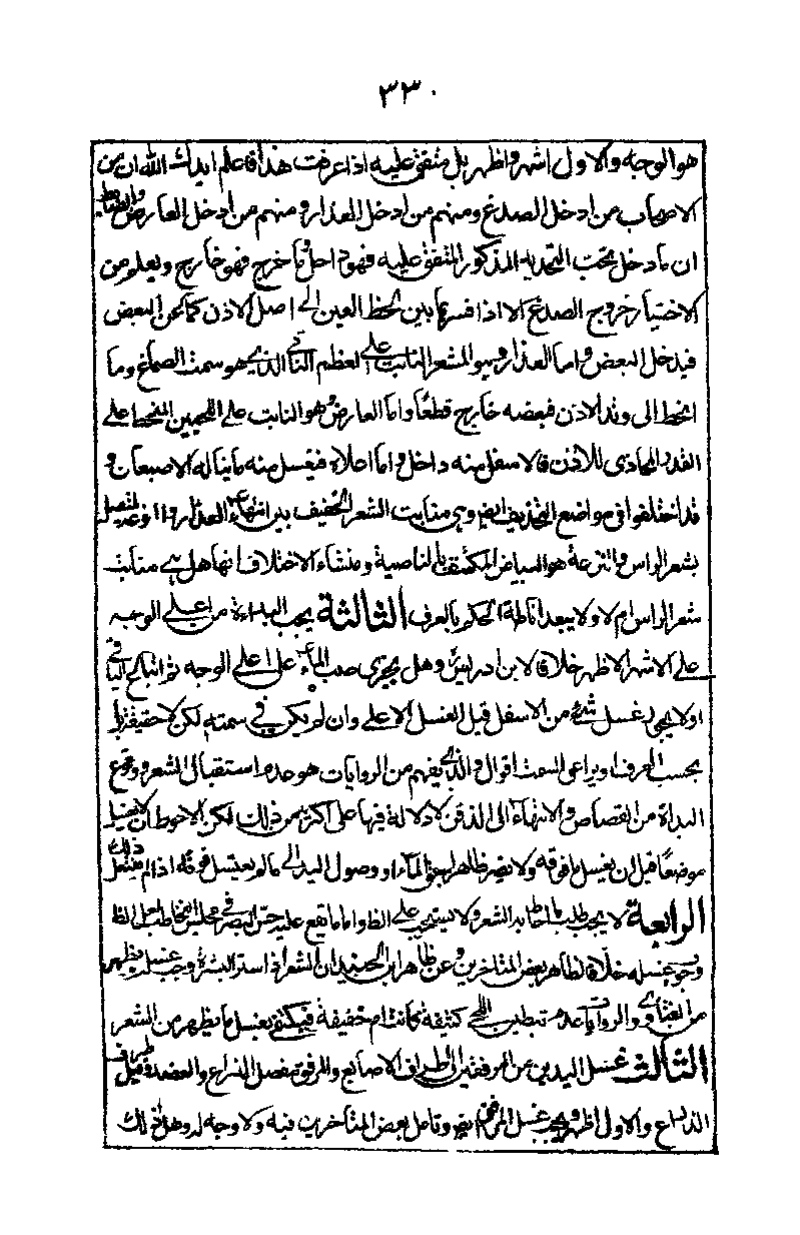 ٣٣٠
هو الوجه والاول اشهر واظهر بل متفق عليه اذا عرفت هذا فاعلم ايدك الله ان من
الاصحاب من ادخل الصدغ ومنهم من ادخل العذار ومنهم من ادخل العارض والضابط
ان ما دخل تحت التحديد المذكور المتفق عليه فهو داخل وما خرج فهو خارج ويعلم من
الاختيار خروج الصدغ الا اذا فسر بما بين لحظ العين الى اصل الاذن كما عن البعض
فيدخل البعض واما العذار وهو الشعر النابت على العظم الناتي الذي هو سمت الصماغ وما
انحط الى وتد الاذن فبعضه خارج قطعًا واما العارض وهو النابت على اللحيين المنحط على
القدر المحاذى للاذن فالاسفل منه داخل واما اعلاه فيغسل منه ما يناله الاصبعان و
قد اختلفوا في مواضع التحذيف ايضا وهي منابت الشعر الخفيف بين انتهاء العذار والنزعة المتصل
بشعر الراس والنزعة هو البياض المكتنف بالناصية ومنشاء الاختلاف انها هل هي منابت
شعر الراس ام لا ولا يبعد اناطة الحكم بالعرف الثالثة يجب البداءة من اعلى الوجه
على الاشهر الاظهر خلافا لابن ادريس وهل يجزى صب الماء على اعلى الوجه ثم اتباع الباقي
او لا يجوز غسل شيء من الاسفل قبل الغسل الاعلى وان لم يكن في سمته لكن لا حقيقة بل
بحسب العرف او يراعى السمت اقوال والذي يفهم من الروايات هو عدم استقبال الشعر ووقوع
البداة من القصاص والانتهاء الى الذقن لا دلالة فيها على اكثر من ذلك لكن الاحوط ان لا يغسل
موضعًا قبل ان يغسل ما فوقه ولا يضر ظاهرا جرى الماء او وصول اليد الى ما لم يغسل فوقه اذا لم يغسل ذلك
الرابعة لا يجب طلب ما احاط به الشعر ولا يستحب على الظ واما ما يقع عليه حس البصر في مجلس التخاطب فعلى الظ
وجوب غسله خلافا لظاهر بعض المتاخرين وعن ظاهر ابن الجنيد ان الشعر اذا ستر البشرة وجب غسل ما يظهر
من الفتاوى والروايات عدم تبطين اللحى كثيفة كانت ام خفيفة فيكتفى بغسل ما يظهر من الشعر
الثالث غسل اليدين من المرفقين الى اطراف الاصابع والمرفق مفصل الذراع والعضد وقيل طرف
الذراع والاول اظهر ويجب غسل المرفق ايضا وتامل بعض المتاخرين فيه ولا وجه له وهل ذلك